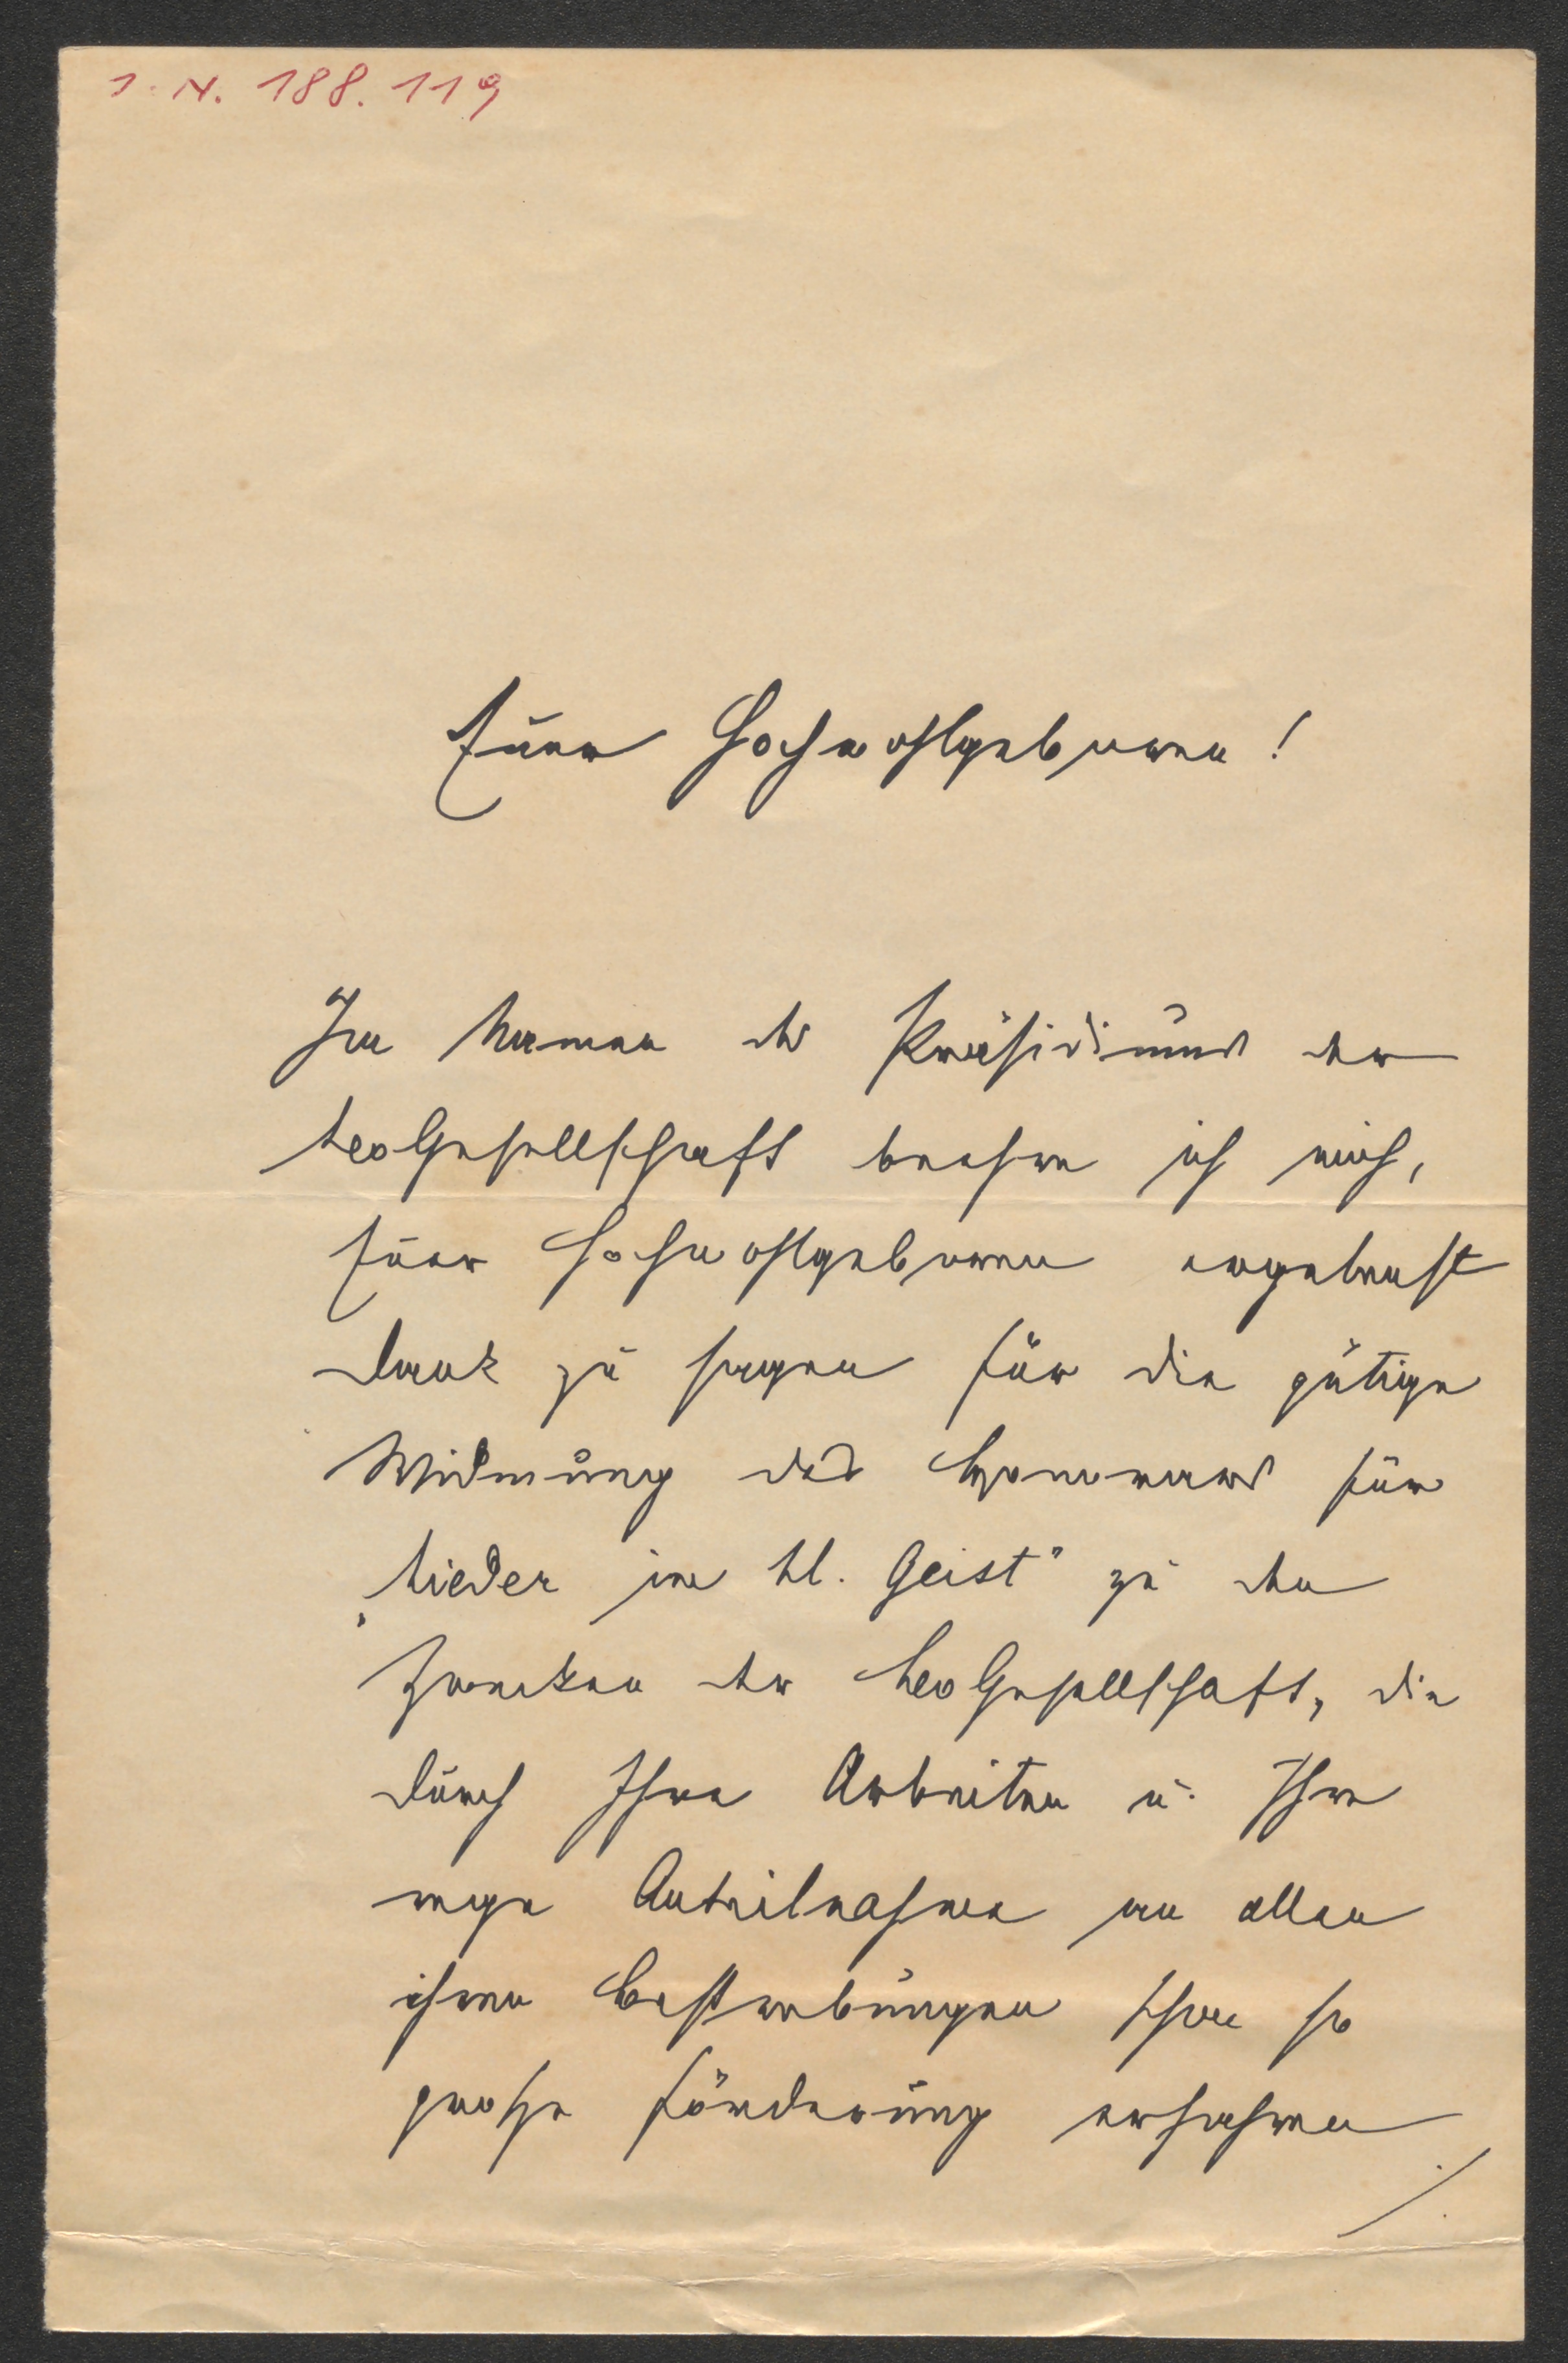 I. N. 188.119
Euer Hochwohlgeboren!
Im Namen des Präsidiums der
Leo Gesellschaft beehre ich mich,
Euer Hochwohlgeboren ergebenst
Dank zu sagen für die gütige
Widmung des Honorars für
„Lieder im hl. Geist" zu den
Zwecken der Leo Gesellschaft, die
durch Ihre Arbeiten u. Ihre
rege Anteilnahme an allen
ihren Bestrebungen schon so
große Förderung erfahren
./.